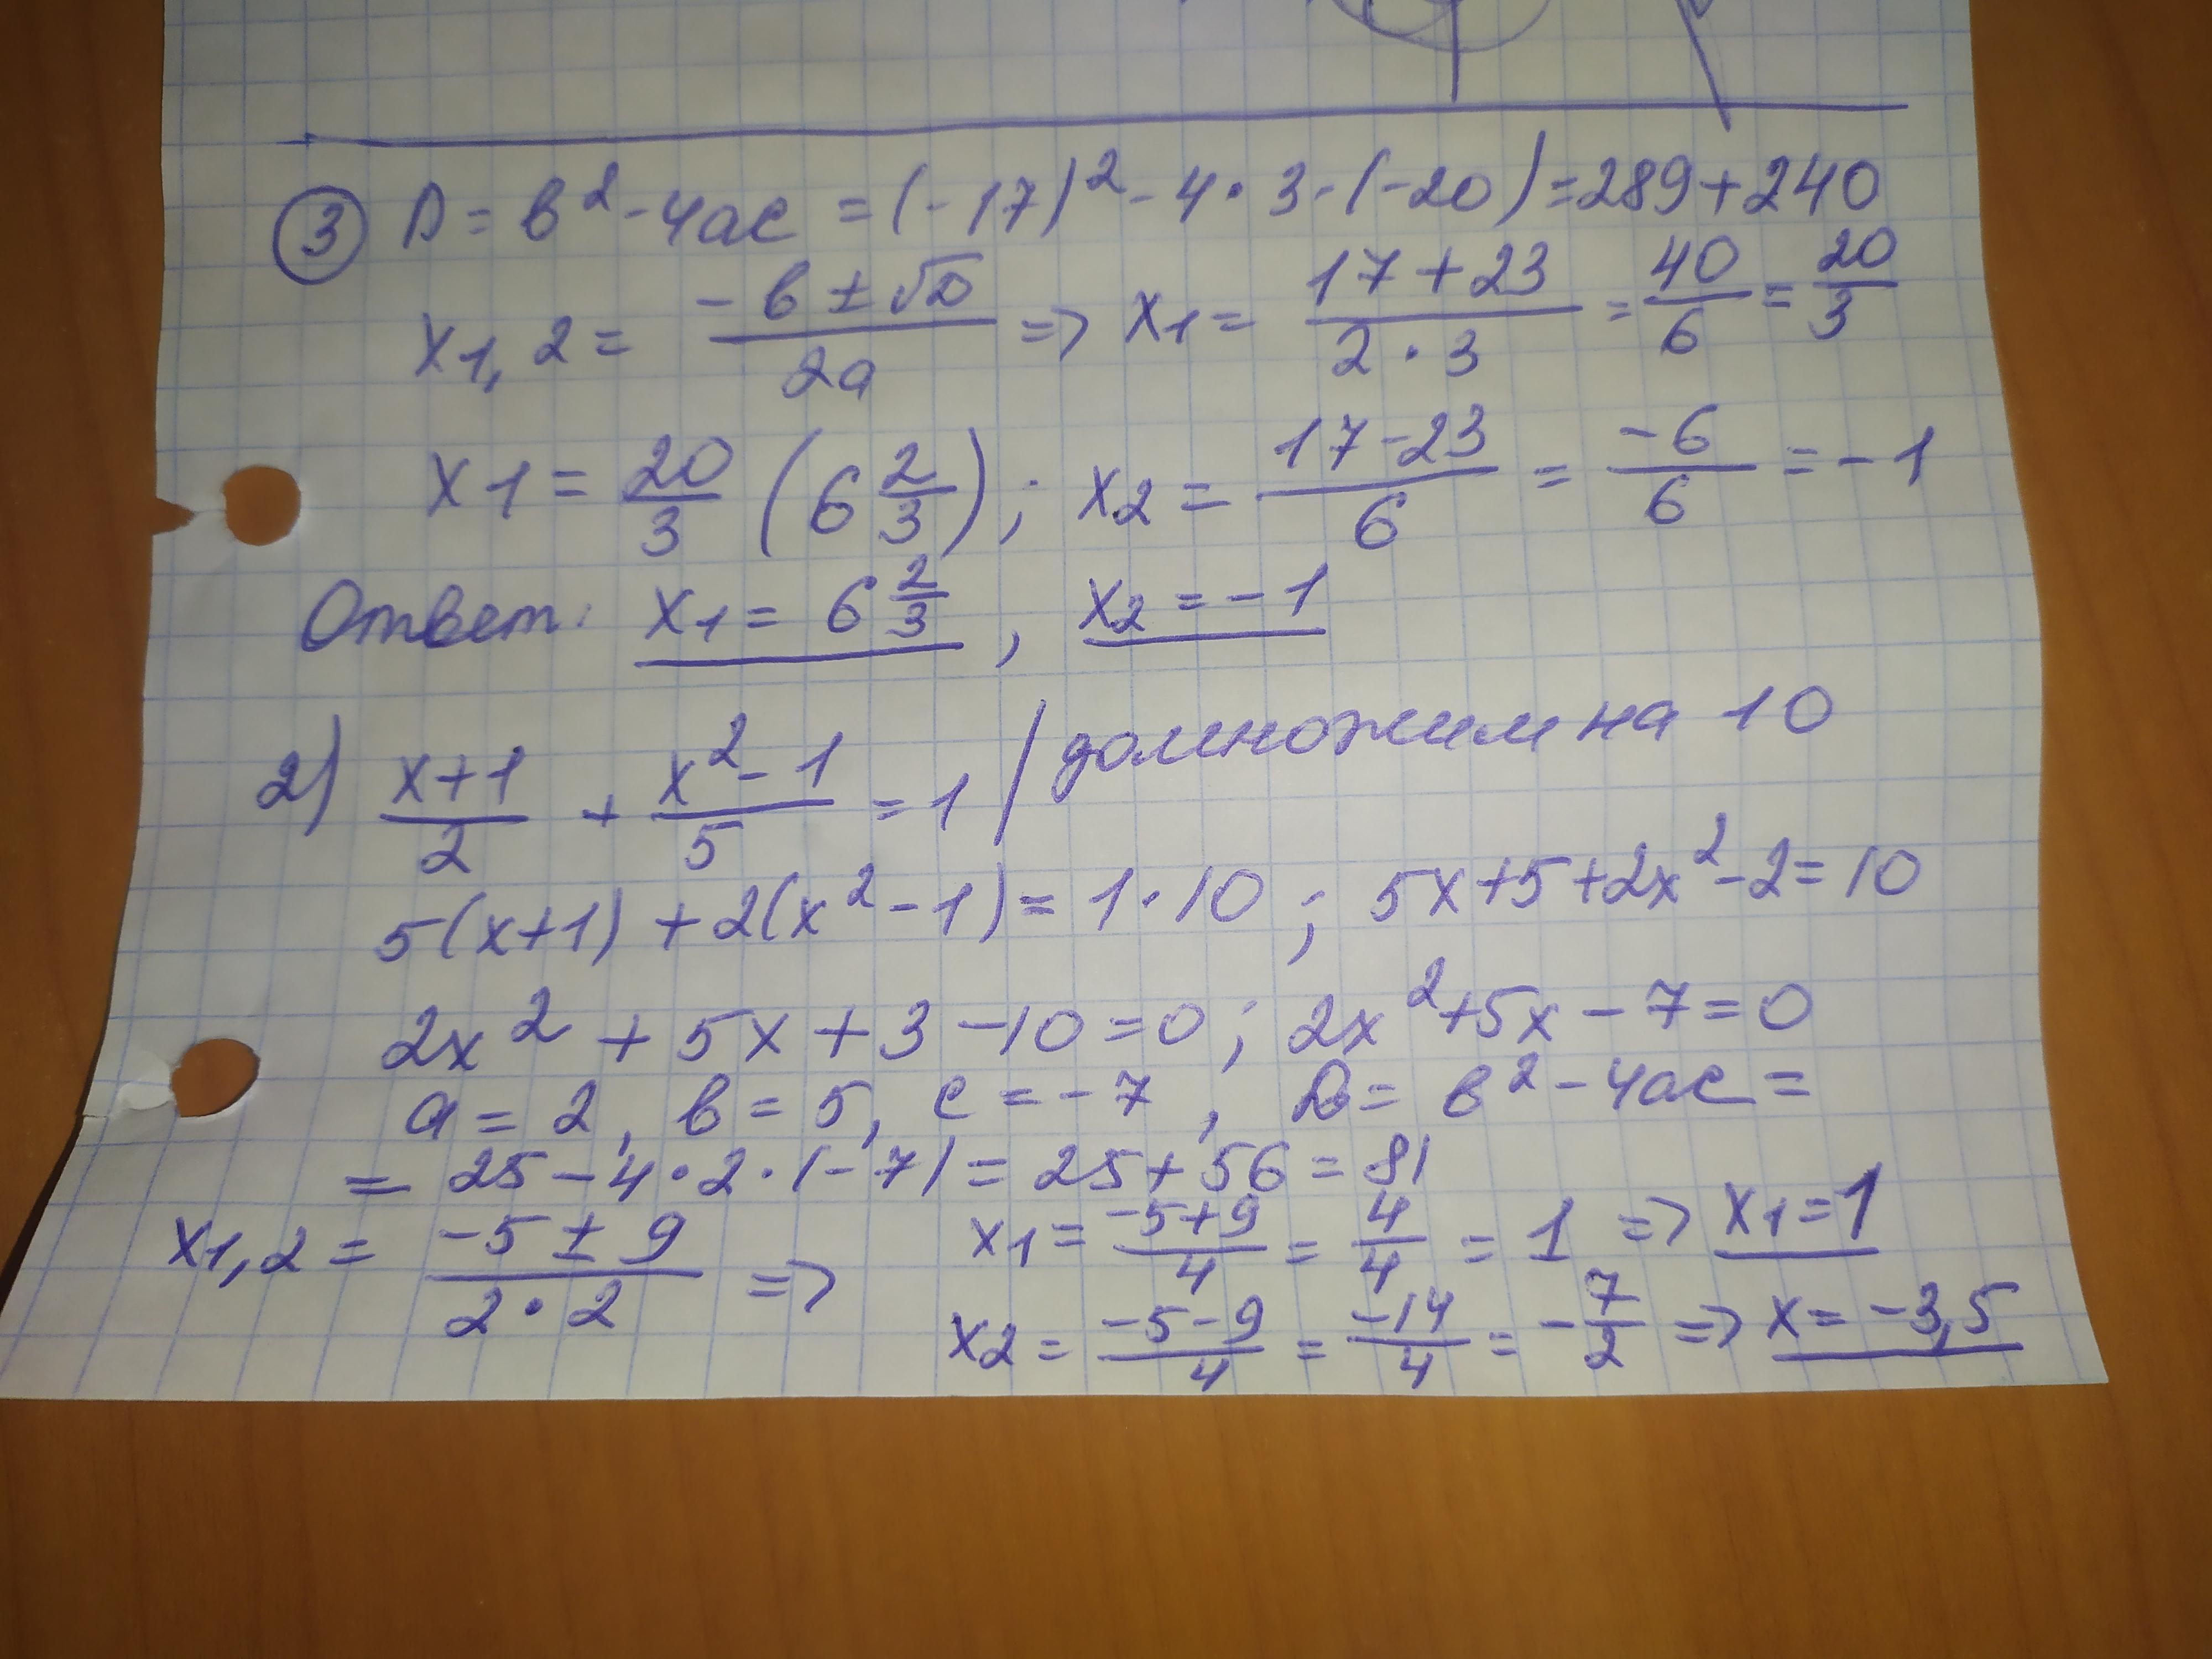 ③ D = b² - 4ac = (-17)² - 4 · 3 · (-20) = 289 + 240
x1,2 = (-b ± √D)/(2a) => x1 = (17 + 23)/(2 · 3) = 40/6 = 20/3
x1 = 20/3 (6 2/3); x2 = (17 - 23)/6 = -6/6 = -1
Ответ: x1 = 6 2/3, x2 = -1
2) (x+1)/2 + (x² - 1)/5 = 1 / домножим на 10
5(x+1) + 2(x² - 1) = 1 · 10; 5x + 5 + 2x² - 2 = 10
2x² + 5x + 3 - 10 = 0; 2x² + 5x - 7 = 0
a = 2, b = 5, c = -7, D = b² - 4ac =
= 25 - 4 · 2 · (-7) = 25 + 56 = 81
x1,2 = (-5 ± 9)/(2 · 2) => x1 = (-5+9)/4 = 4/4 = 1 => x1 = 1
x2 = (-5-9)/4 = -14/4 = -7/2 => x = -3,5